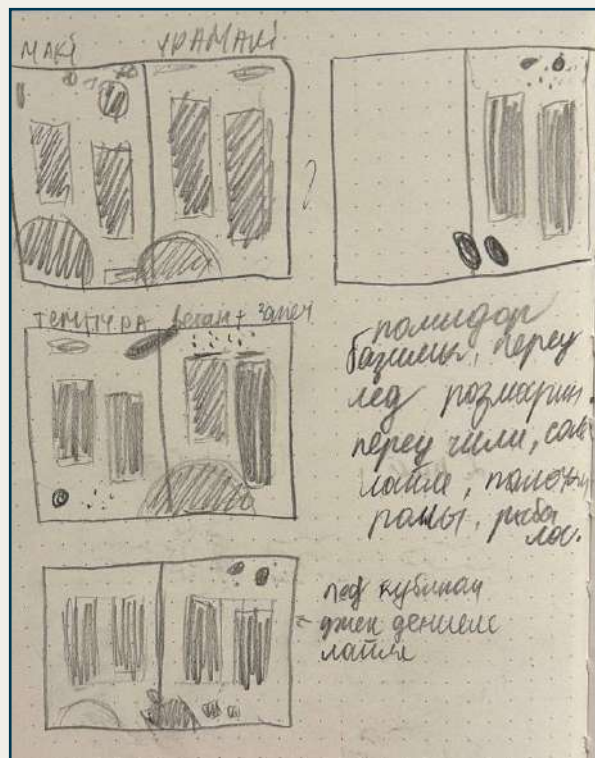 МАКІ УРАМАКІ
ТЕМПУРА веган + запеч
помидор
базилик, перец
лед розмарин.
перец чили, соль
лайм, палочки
роллы, рыба
лос.
лед кубиками
джек дениелс
лайм